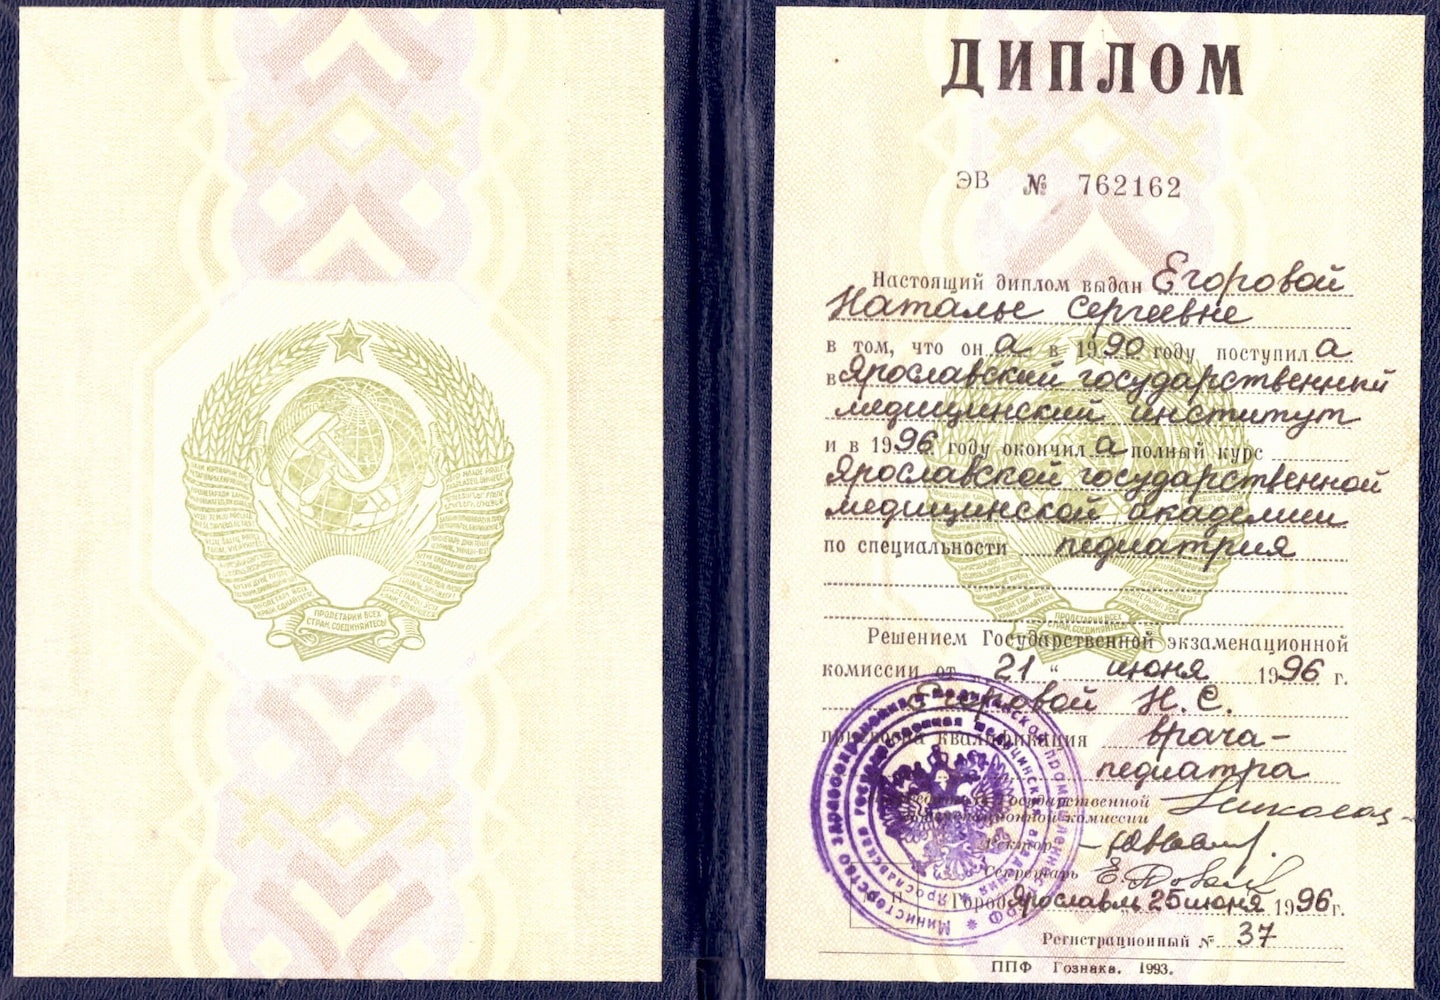 ПРОЛЕТАРИИ ВСЕХ
СТРАН, СОЕДИНЯЙТЕСЬ!
ДИПЛОМ
ЭВ № 762162
Настоящий диплом выдан Егоровой
Наталье Сергеевне
в том, что он а в 1990 году поступил а
в Ярославский государственный
медицинский институт
и в 1996 году окончил а полный курс
Ярославской государственной
медицинской академии
по специальности педиатрия
Решением Государственной экзаменационной
комиссии от 21 " июня 1996 г.
Егоровой Н. С.
присвоена квалификация врача-
педиатра
Государственной
экзаменационной комиссии
Ректор
Секретарь
Город Ярославль 25 июня 1996 г.
Регистрационный № 37
ППФ Гознака. 1993.
Министерство здравоохранения и медицинской промышленности РФ *
Ярославская государственная медицинская академия